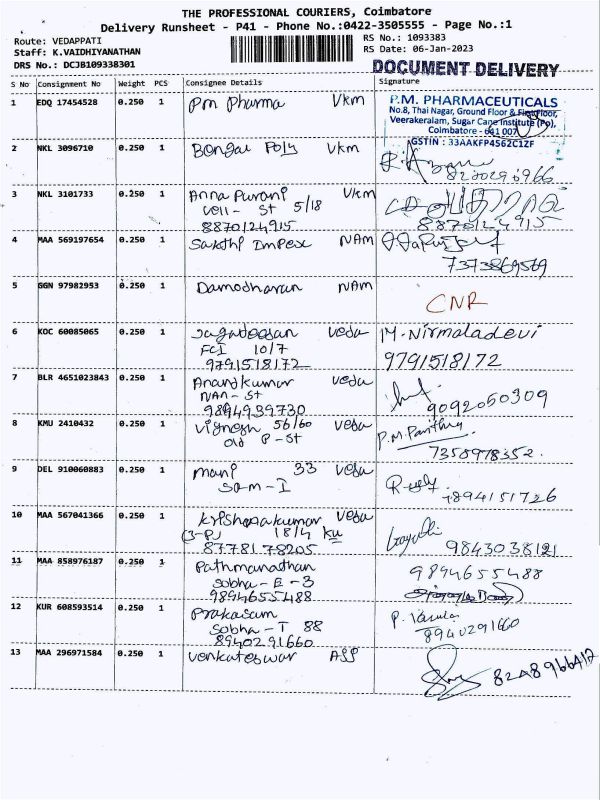 THE PROFESSIONAL COURIERS, Coimbatore
Delivery Runsheet - P41 - Phone No.:0422-3505555 - Page No.:1
Route: VEDAPPATI
RS No.: 1093383
Staff: K.VAIDHIYANATHAN
RS Date: 06-Jan-2023
DRS No.: DCJB109338301
DOCUMENT DELIVERY
S No Consignment No Weight PCS Consignee Details Signature
1 EDQ 17454528 0.250 1 Pm Pharma Vkm
P.M. PHARMACEUTICALS
No.8, Thai Nagar, Ground Floor & First Floor,
Veerakeralam, Sugar Cane Institute (Po),
Coimbatore - 641 007
GSTIN : 33AAKFP4562C1ZF
2 NKL 3096710 0.250 1 Bongai Poly Vkm
3 NKL 3101733 0.250 1 Anna Purani Vkm
Vell- St 5/18
8870124915 8870124915
4 MAA 569197654 0.250 1 Sakthi Impex NAm
7373869569
5 GGN 97982953 0.250 1 Damodharan NAm
CNR
6 KOC 60085065 0.250 1 Jagadeesan Veda M. Nirmaladevi
FCI 10/7
9791518172 9791518172
7 BLR 4651023843 0.250 1 Anandkumar Veda
NAN - St
9894939730 9092050309
8 KMU 2410432 0.250 1 Vignesh 56/60 Veda
Old P-St
7358978352.
9 DEL 910060883 0.250 1 mani 33 Veda
Sam-I
7894151726
10 MAA 567041366 0.250 1 Krishnakumar Veda
18/4 KU
8778178205 9843038121
11 MAA 858976187 0.250 1 Pathmanathan 9894655488
Sobha - E - 3
9894655488
12 KUR 608593514 0.250 1 Prakasam
Sobha - T 88
8940291660 8940291660
13 MAA 296971584 0.250 1 Venkateswar ASS
8248966412